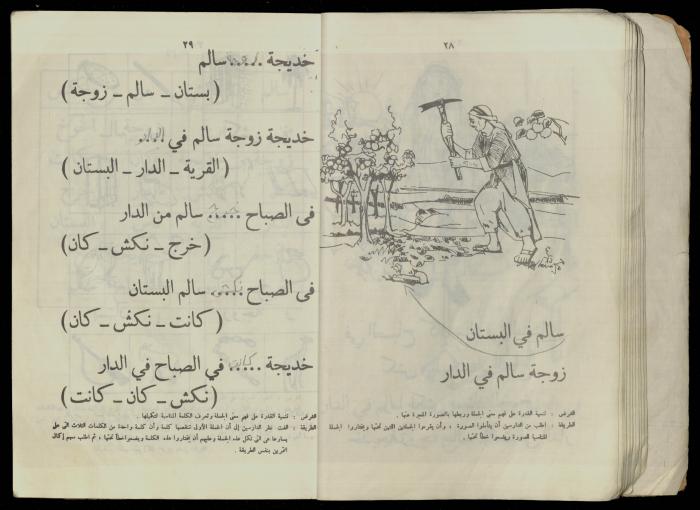 ٢٨
سالم في البستان
زوجة سالم في الدار
الغرض : تنمية القدرة على فهم معنى الجملة وربطها بالصورة المعبرة عنها .
الطريقة : اطلب من الدارسين أن يتأملوا الصورة ، وأن يقرءوا الجملتين اللتين تحتها ويختاروا الجملة
المناسبة للصورة ويضعوا خطاً تحتها .
٢٩
خديجة ..... سالم
(بستان – سالم – زوجة)
خديجة زوجة سالم في الدار
(القرية – الدار – البستان)
فى الصباح خرج سالم من الدار
(خرج – نكش – كان)
فى الصباح نكش سالم البستان
(كانت – نكش – كان)
خديجة كانت في الصباح في الدار
(نكش – كان – كانت)
الغرض : تنمية القدرة على فهم معنى الجملة وتعرف الكلمة المناسبة لتكملتها .
الطريقة : الفت نظر الدارسين إلى أن الجملة الأولى تنقصها كلمة وأن كلمة واحدة من الكلمات الثلاث التى على
يسارها هى التى تكمل هذه الجملة وعليهم أن يختاروا هذه الكلمة ويضعوا خطاً تحتها ، ثم اطلب منهم إكمال
التمرين بنفس الطريقة .